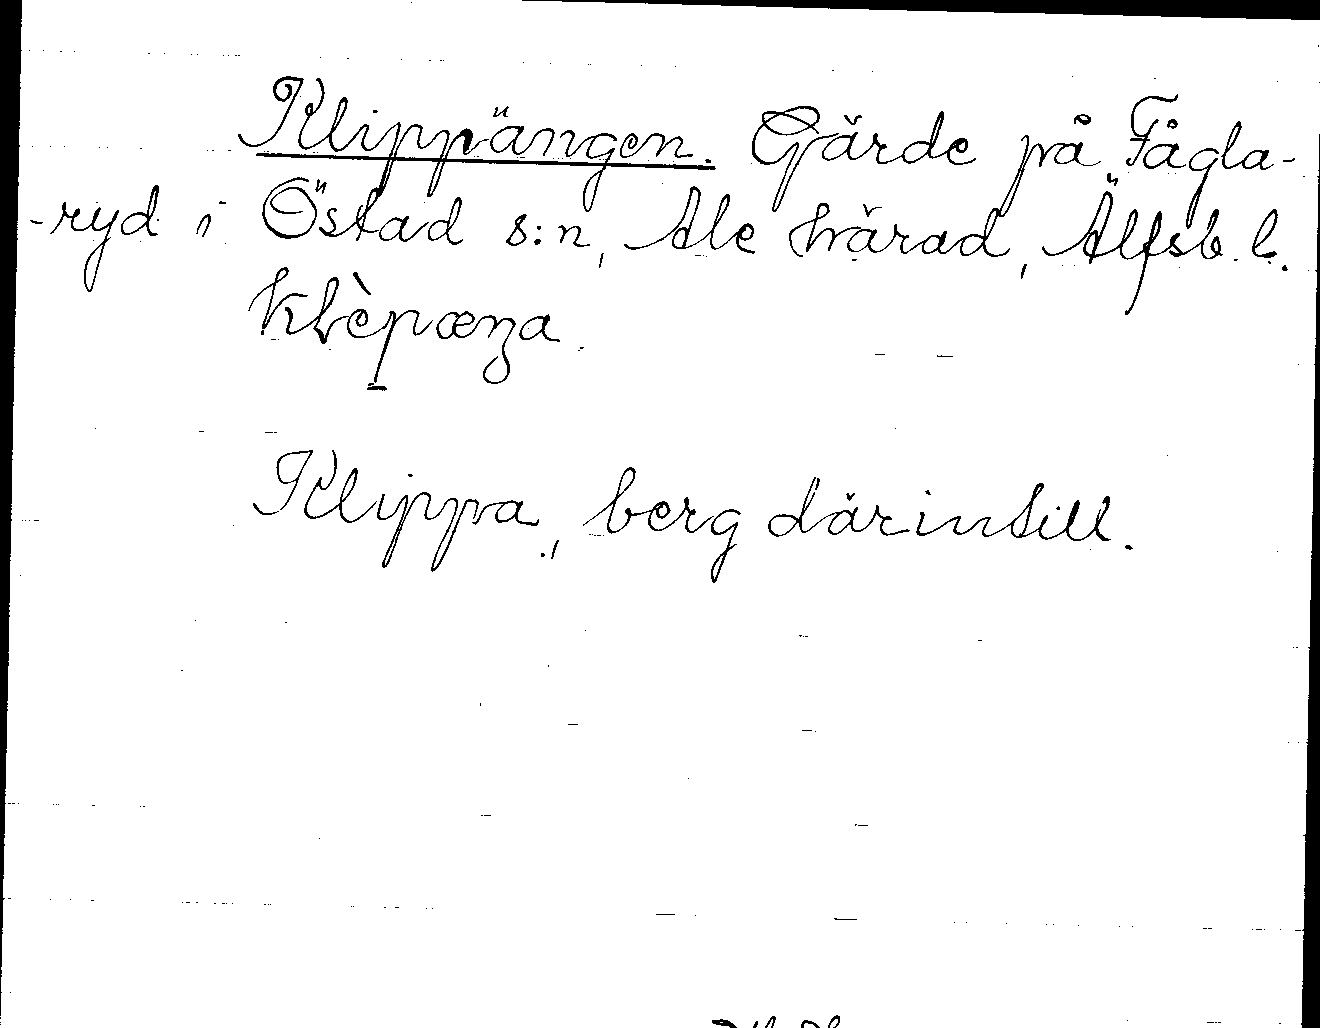 Klippängen. Gärde på Fågla-
-ryd i Östad s:n, Ale härad, Älfsb. l.
klèpæŋa.
Klippa, berg därintill.